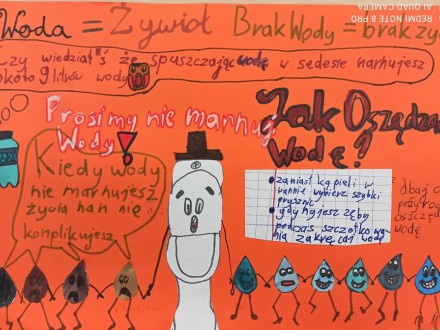 REDMI NOTE 8 PRO
AI QUAD CAMERA
Woda = Żywioł Brak Wody = brak
Czy wiedziałeś że spuszczając wodę w sedesie marnujesz
około 9 litrów wody
Prosimy nie marnuj
Wody!
Jak Oszczędza
Wodę?
Kiedy wody
nie marnujesz
życia nam nie
komplikujesz
zamiast kąpieli w
wannie wybierz szybki
prysznic
gdy myjesz zęby
podczas szczotkowa
nia zakręcaj wodę
dbaj o
przyrodę
oszczęd
wodę